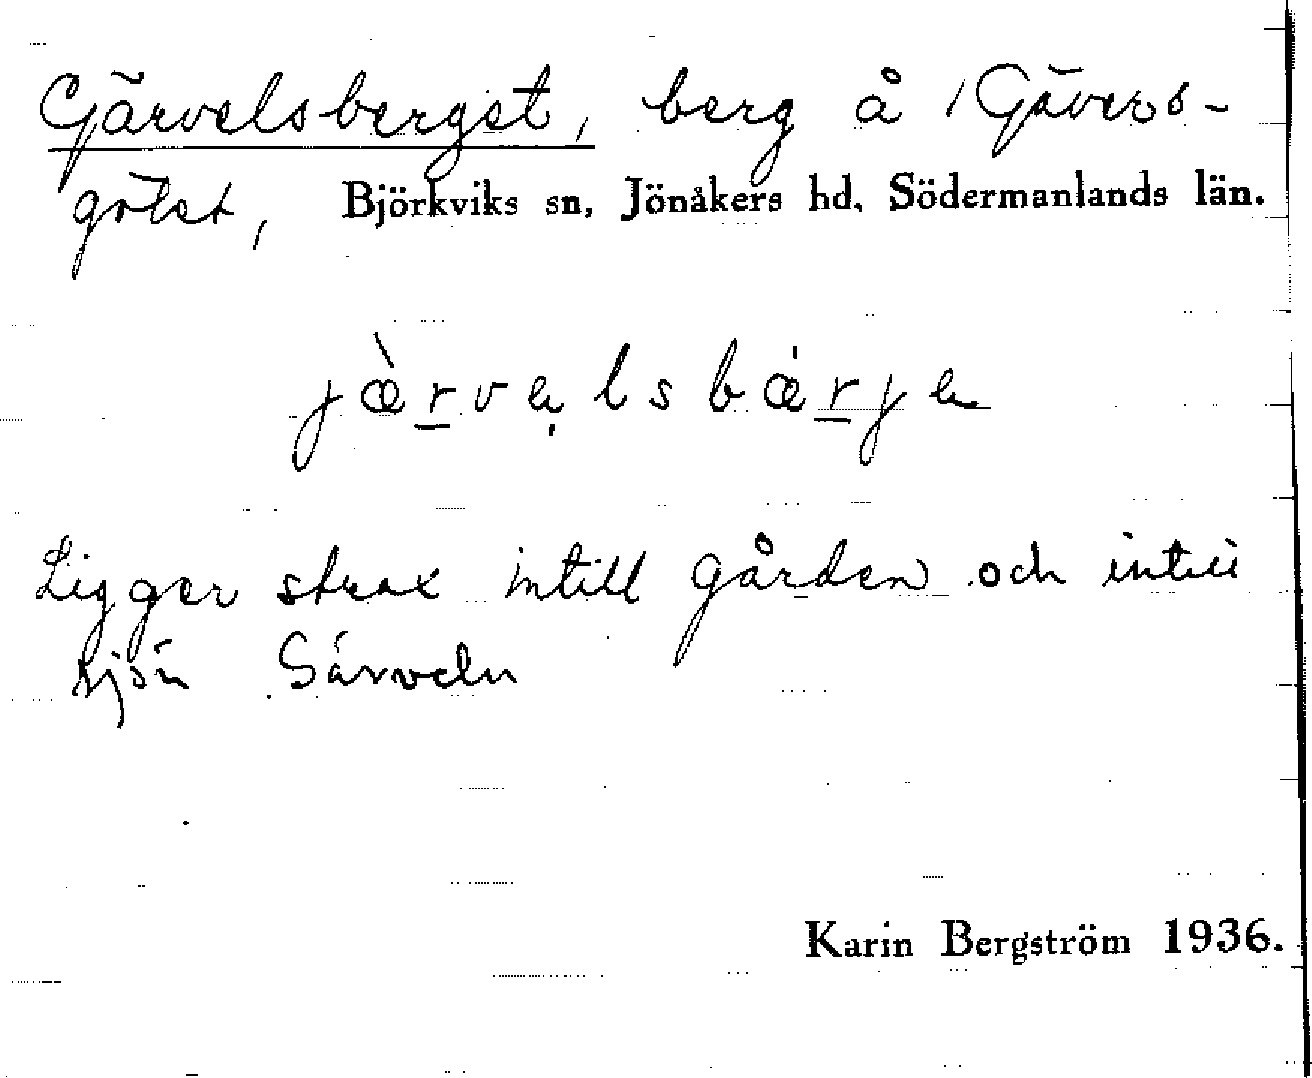 Gärvelsberget, berg å Gävers-
götet, Björkviks sn, Jönåkers hd, Södermanlands län.
jæ̀rvəḷsbærjə
Ligger strax intill gården och intill
sjön Särveln
Karin Bergström 1936.